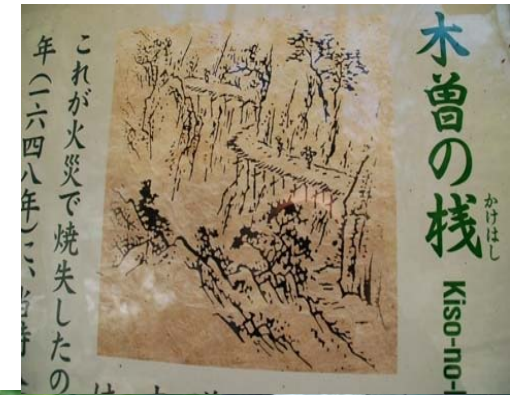 木曽の桟
かけはし
Kiso-no-
これが火災で焼失したの
年(一六四八年)に、当時